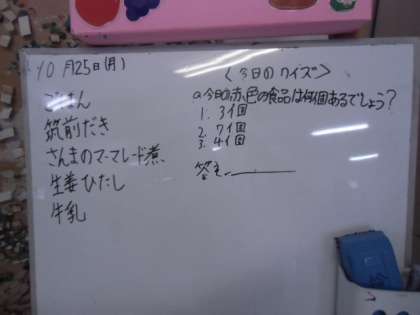 10月25日(月)
ごはん
筑前だき
さんまのマーマレード煮
生姜ひたし
牛乳
〈今日のクイズ〉
Q.今日の赤色の食品は何個あるでしょう?
1. 3個
2. 7個
3. 4個
答え.